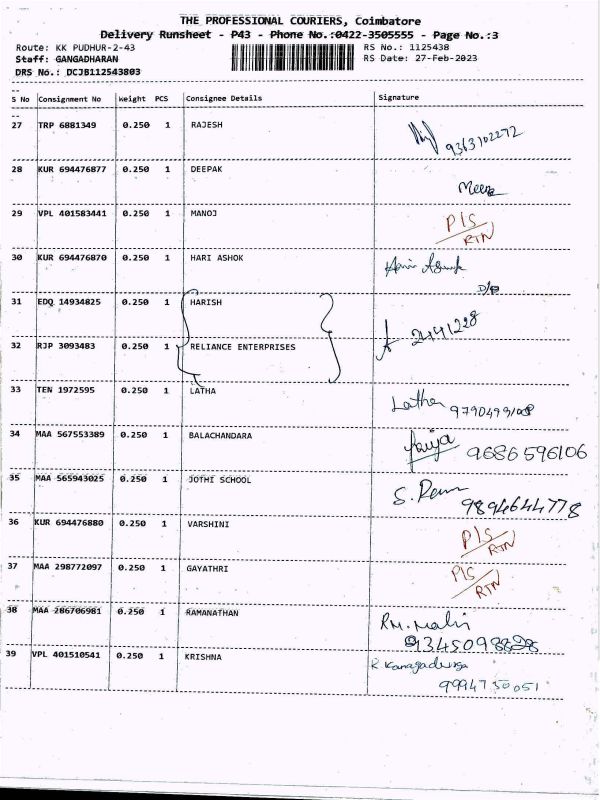 THE PROFESSIONAL COURIERS, Coimbatore
Delivery Runsheet - P43 - Phone No.:0422-3505555 - Page No.:3
Route: KK PUDHUR-2-43 RS No.: 1125438
Staff: GANGADHARAN RS Date: 27-Feb-2023
DRS No.: DCJB112543803
S No Consignment No Weight PCS Consignee Details Signature
27 TRP 6881349 0.250 1 RAJESH 9363102272
28 KUR 694476877 0.250 1 DEEPAK Meera
29 VPL 401583441 0.250 1 MANOJ P/S
RTN
30 KUR 694476870 0.250 1 HARI ASHOK Hari Ashok
D/B
31 EDQ 14934825 0.250 1 HARISH
32 RJP 3093483 0.250 1 RELIANCE ENTERPRISES 24141228
33 TEN 1972595 0.250 1 LATHA Latha 9790499108
34 MAA 567553389 0.250 1 BALACHANDARA 9686596106
35 MAA 565943025 0.250 1 JOTHI SCHOOL S. Ram
9894644778
36 KUR 694476880 0.250 1 VARSHINI P/S
RTN
37 MAA 298772097 0.250 1 GAYATHRI P/S
RTN
38 MAA 286706981 0.250 1 RAMANATHAN RM. Malini
9345098828
39 VPL 401510541 0.250 1 KRISHNA R Kanagadurga
9994750051